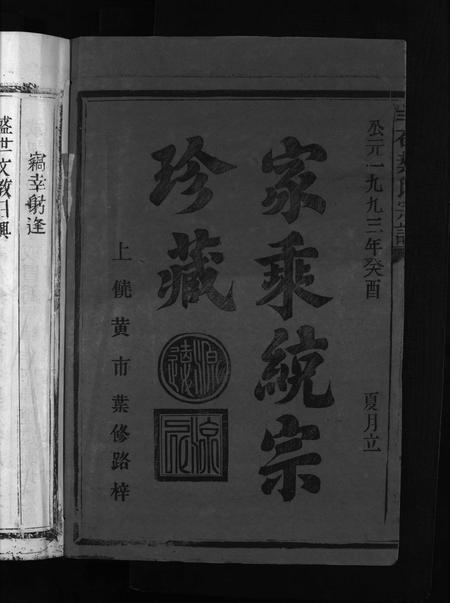 公元一九九三年癸酉 夏月立
家乘統宗
珍藏
源遠
上饒黄市葉修路梓
竊幸躬逢
盛世文教日興